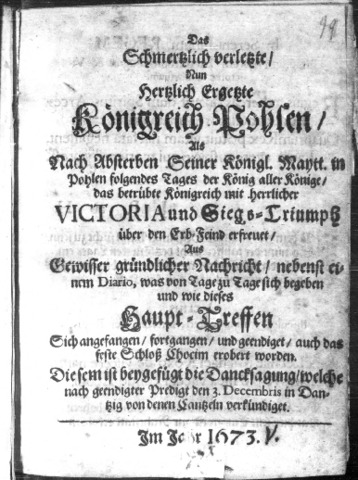 99
Das
Schmertzlich verletzte/
Nun
Hertzlich Ergetzte
Königreich Pohlen/
Als
Nach Absterben Seiner Königl. Maytt. in
Pohlen folgendes Tages der König aller Könige/
das betrübte Königreich mit herrlicher
VICTORIA und Siegs-Triumph
über den Erb-Feind erfreuet/
Aus
Gewisser gründlicher Nachricht/ nebenst ei-
nem Diario, was von Tage zu Tage sich begeben
und wie dieses
Haupt-Treffen
Sich angefangen/ fortgangen/ und geendiget/ auch das
feste Schloß Chocim erobert worden.
Diesem ist beygefügt die Dancksagung/ welche
nach geendigter Predigt den 3. Decembris in Dan-
tzig von denen Cantzeln verkündiget.
Im Jahr 1673.